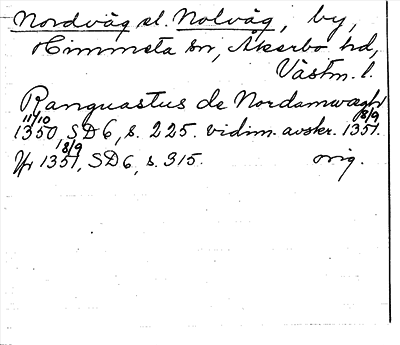 Nordväg el. Nolväg, by,
Himmeta sn, Åkerbo hd,
Västm. l.
Ranguastus de Nordamwægh
11/10 1350, SD 6, s. 225. vidim. avskr. 18/9 1351.
18/9 1351, SD 6, s. 315. orig.